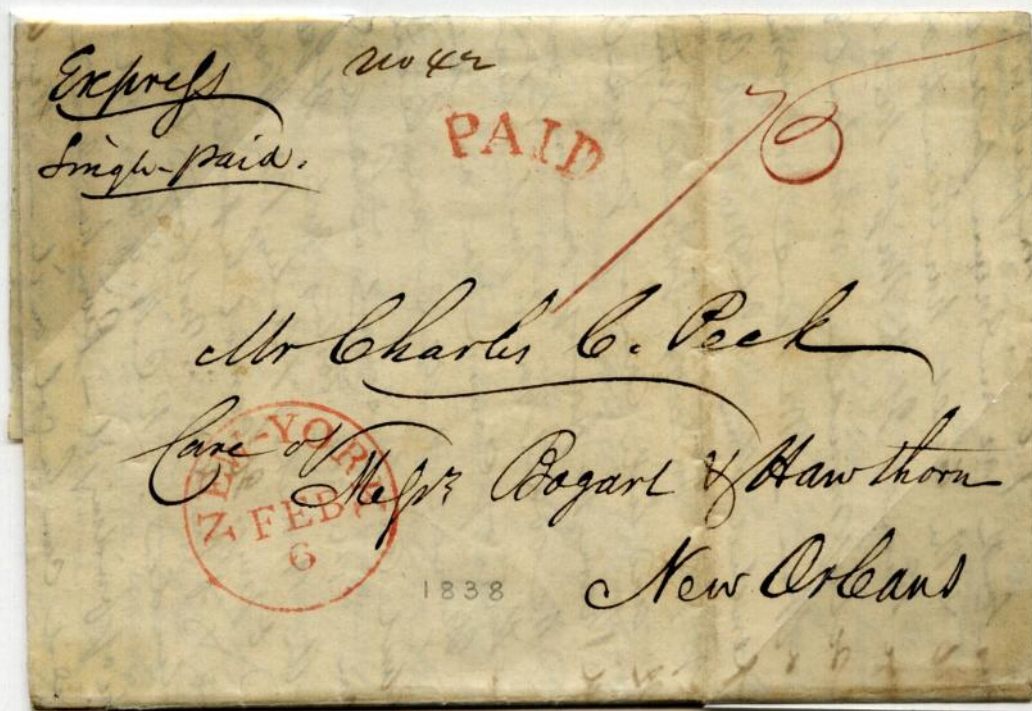 Express no 42
Single paid.
PAID
Mr Charles C. Peck
Care of Messrs Bogart & Hawthorn
New Orleans
NEW-YORK
FEB
6
1838